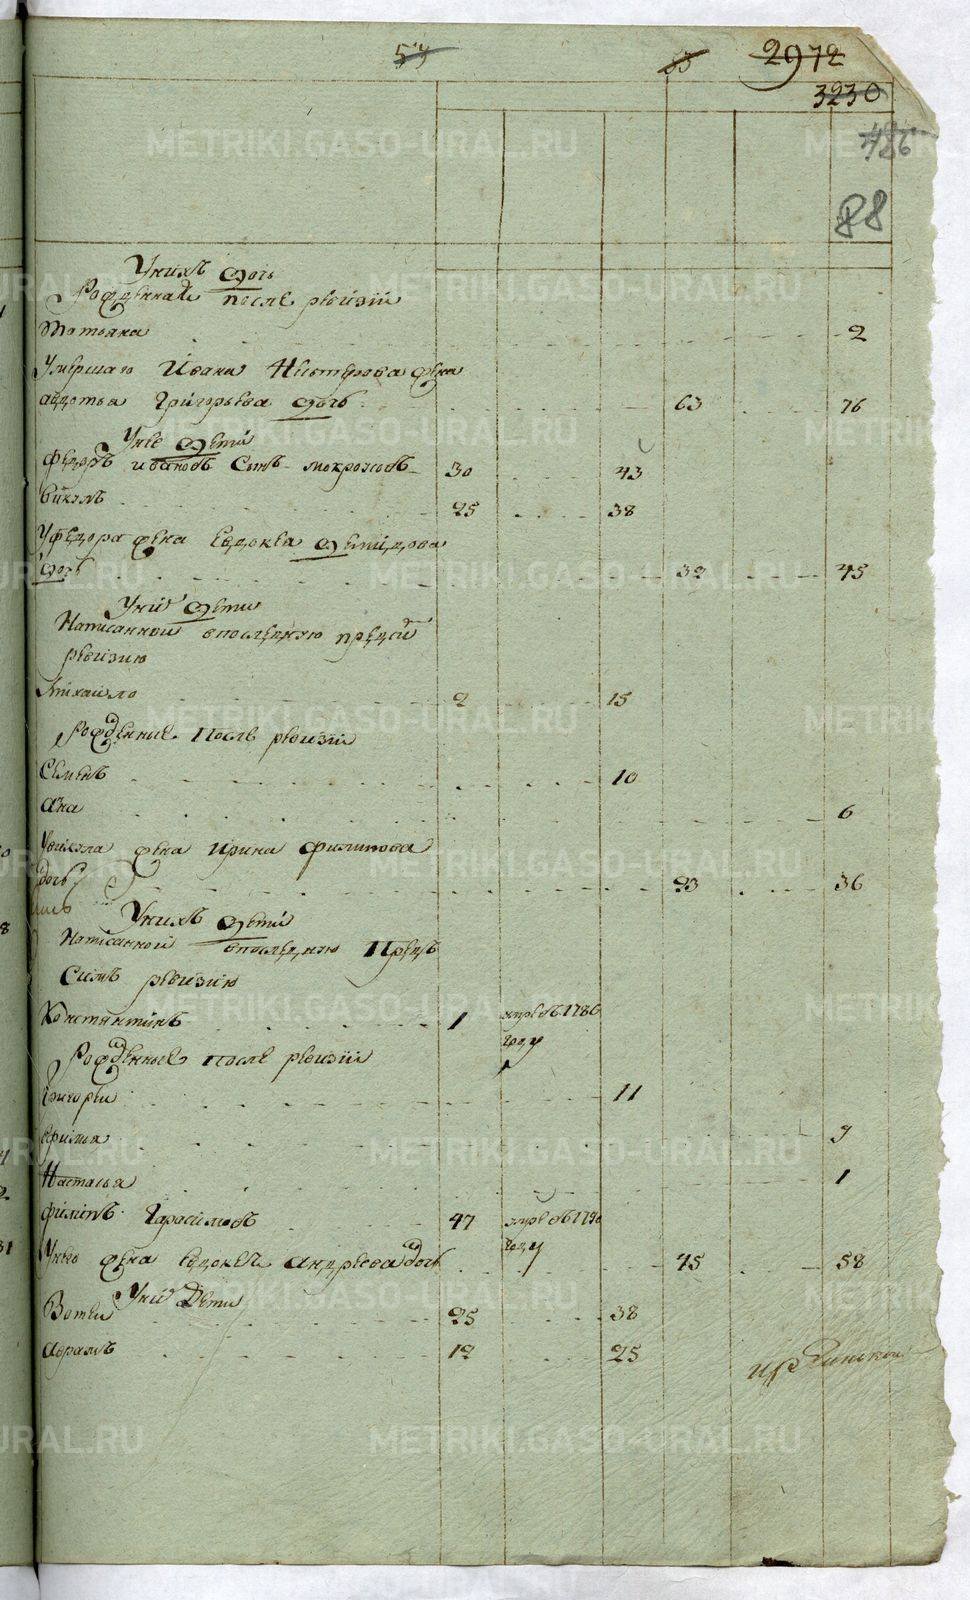 54 83 2972
3230
486
88
Унихъ дочь
Рожденная после ревизии
Татьяна 2
Умершаго Ивана Нестерова жена
авдотья Григорьева дочь 63 76
Унее дети
Федоръ ивановъ Сынъ 30 43
Викулъ 25 38
Уфедора жена Евдокея
дочь 32 45
Уних дети
Написанной впоследнюю пред сим
ревизию
Михайло 2 15
Рожденные После ревизии
Семенъ 10
Анна 6
Увикула жена Ирина филипова
дочь 23 36
Унихъ дети
Написанной впоследнюю Предъ
Симъ ревизию
Константинъ 1 умре въ 1786
году
Рожденные после ревизии
Григорей 11
9
Наталья 1
филипъ Гарасимовъ 47 умре въ 1790
году
Унево жена Евдокея андреева дочь 45 58
Уних Дети
Фотей 25 38
аврамъ 12 25
METRIKI.GASO-URAL.RU